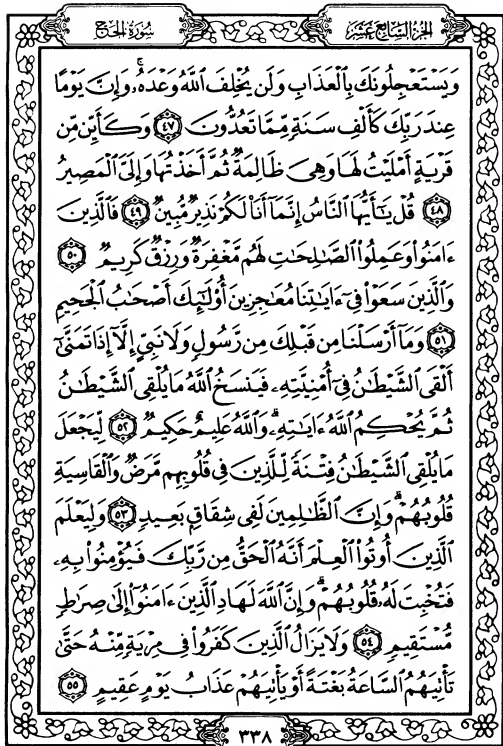 سُورَةُ الحَجّ
الجُزْءُ السَّابِعَ عَشَرَ
وَيَسْتَعْجِلُونَكَ بِٱلْعَذَابِ وَلَن يُخْلِفَ ٱللَّهُ وَعْدَهُۥۚ وَإِنَّ يَوْمًا
عِندَ رَبِّكَ كَأَلْفِ سَنَةٍ مِّمَّا تَعُدُّونَ ٤٧ وَكَأَيِّن مِّن
قَرْيَةٍ أَمْلَيْتُ لَهَا وَهِىَ ظَالِمَةٌ ثُمَّ أَخَذْتُهَا وَإِلَىَّ ٱلْمَصِيرُ
٤٨ قُلْ يَٰٓأَيُّهَا ٱلنَّاسُ إِنَّمَآ أَنَا۠ لَكُمْ نَذِيرٌ مُّبِينٌ ٤٩ فَٱلَّذِينَ
ءَامَنُوا۟ وَعَمِلُوا۟ ٱلصَّٰلِحَٰتِ لَهُم مَّغْفِرَةٌ وَرِزْقٌ كَرِيمٌ ٥٠
وَٱلَّذِينَ سَعَوْا۟ فِىٓ ءَايَٰتِنَا مُعَٰجِزِينَ أُو۟لَٰٓئِكَ أَصْحَٰبُ ٱلْجَحِيمِ
٥١ وَمَآ أَرْسَلْنَا مِن قَبْلِكَ مِن رَّسُولٍ وَلَا نَبِىٍّ إِلَّآ إِذَا تَمَنَّىٰٓ
أَلْقَى ٱلشَّيْطَٰنُ فِىٓ أُمْنِيَّتِهِۦ فَيَنسَخُ ٱللَّهُ مَا يُلْقِى ٱلشَّيْطَٰنُ
ثُمَّ يُحْكِمُ ٱللَّهُ ءَايَٰتِهِۦۗ وَٱللَّهُ عَلِيمٌ حَكِيمٌ ٥٢ لِّيَجْعَلَ
مَا يُلْقِى ٱلشَّيْطَٰنُ فِتْنَةً لِّلَّذِينَ فِى قُلُوبِهِم مَّرَضٌ وَٱلْقَاسِيَةِ
قُلُوبُهُمْۗ وَإِنَّ ٱلظَّٰلِمِينَ لَفِى شِقَاقٍۭ بَعِيدٍ ٥٣ وَلِيَعْلَمَ
ٱلَّذِينَ أُوتُوا۟ ٱلْعِلْمَ أَنَّهُ ٱلْحَقُّ مِن رَّبِّكَ فَيُؤْمِنُوا۟ بِهِۦ
فَتُخْبِتَ لَهُۥ قُلُوبُهُمْۗ وَإِنَّ ٱللَّهَ لَهَادِ ٱلَّذِينَ ءَامَنُوٓا۟ إِلَىٰ صِرَٰطٍ
مُّسْتَقِيمٍ ٥٤ وَلَا يَزَالُ ٱلَّذِينَ كَفَرُوا۟ فِى مِرْيَةٍ مِّنْهُ حَتَّىٰ
تَأْتِيَهُمُ ٱلسَّاعَةُ بَغْتَةً أَوْ يَأْتِيَهُمْ عَذَابُ يَوْمٍ عَقِيمٍ ٥٥
٣٣٨